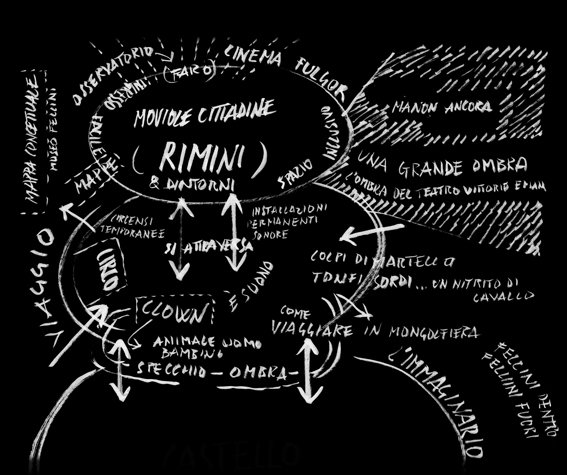 OSSERVATORIO
(FARO)
CINEMA FULGOR
MAPPA CONCETTUALE
MUSEO FELLINI
MOVIOLE CITTADINE
(RIMINI)
& DINTORNI
MAPPE
SPAZIO
MANON ANCORA
UNA GRANDE OMBRA
L'OMBRA DEL TEATRO VITTORIO EMAN
TEMPORANEE
INSTALLAZIONI
PERMANENTI
SONORE
SI ATTRAVERSA
VIAGGIO
E SUONO
COLPI DI MARTELLO
TONFI SORDI... UN NITRITO DI
CAVALLO
CLOWN
ANIMALE UOMO
BAMBINO
SPECCHIO - OMBRA -
COME
VIAGGIARE IN MONGOLFIERA
L'IMMAGINARIO
FELLINI DENTRO
FELLINI FUORI
CASTELLO